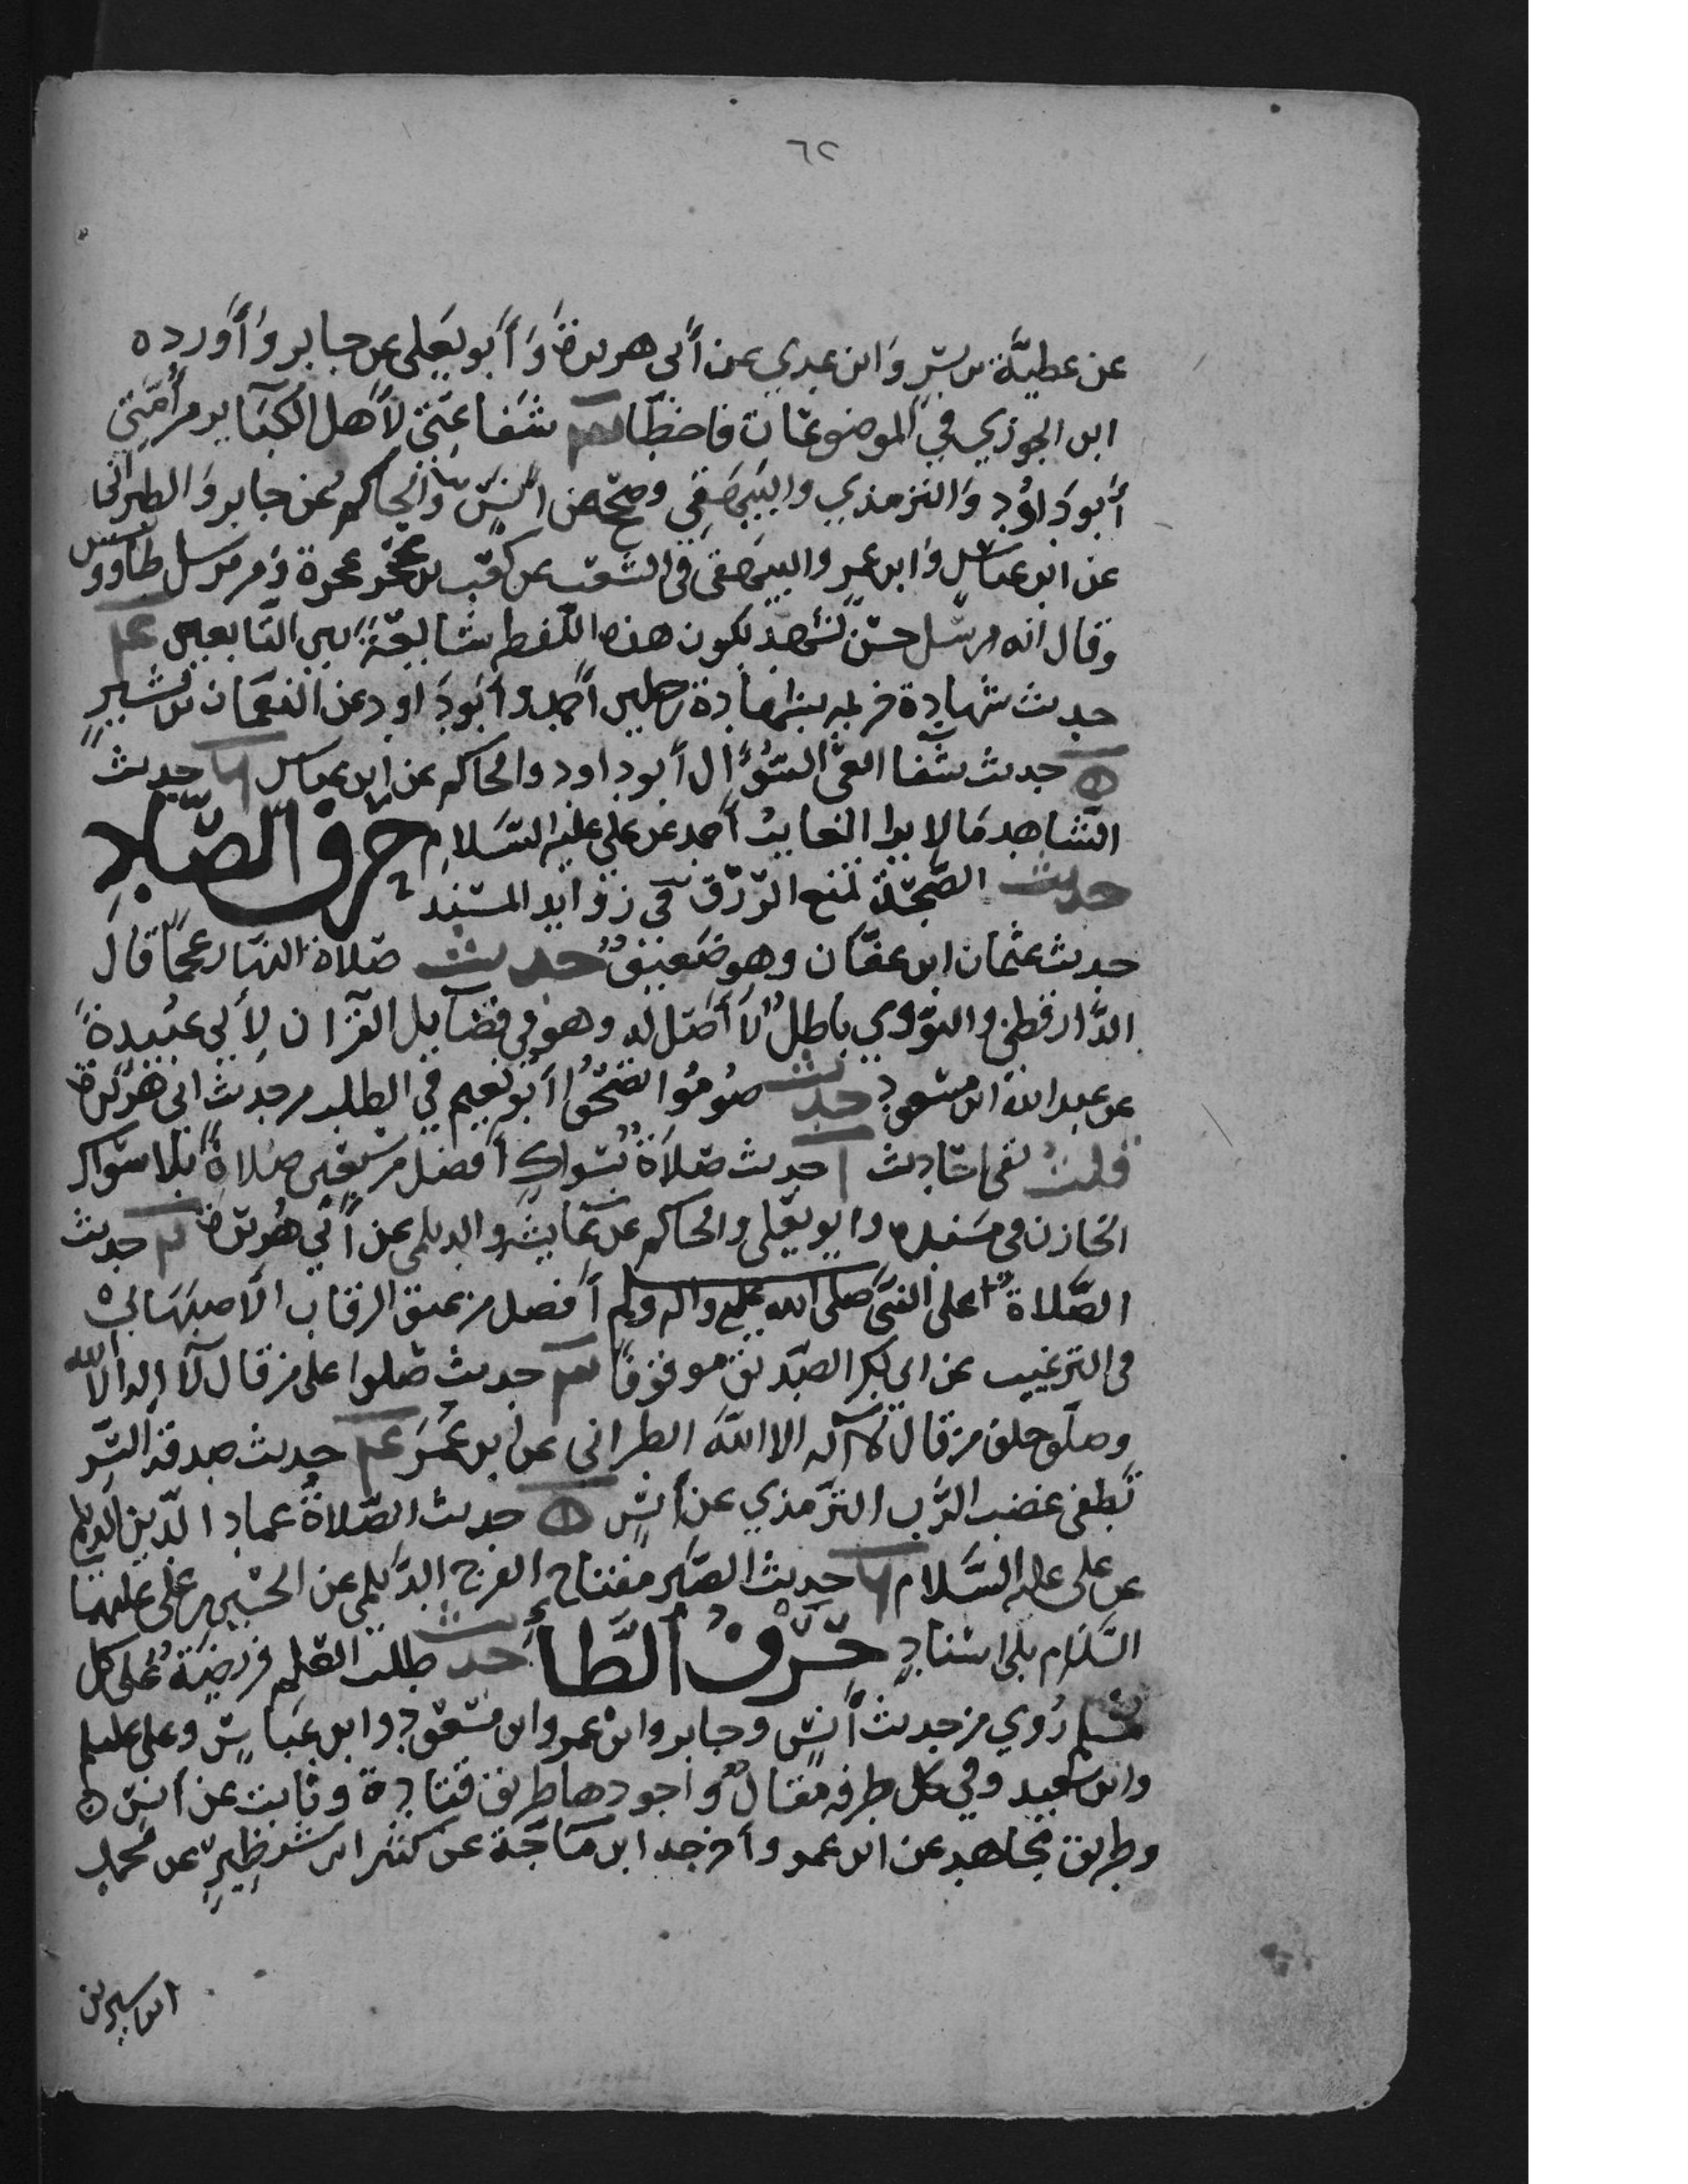 ٦٢
عن عطيّة بن بسر وابن عدي عن أبي هريرة وأبو يعلى عن جابر وأورده
ابن الجوزي في الموضوعات فاخطأ شفاعتي لأهل الكبائر من أمّتي
أبو داود والترمذي والبيهقي وصحح عن انس والحاكم عن جابر والطبراني
عن ابن عباس وابن عمر والبيهقي في الشعب عن كعب بن عجرة ومن مرسل طاووس
وقال انه مرسل حسن لشهد لكون هذه اللفظة شايعة بين التابعين
حديث شهادة خزيمة بشهادة رجلين أحمد وأبو داود عن النعمان بن بشير
حديث شفا العيّ السؤال أبو داود والحاكم عن ابن عباس حديث
الشاهد مالا يرا الغايب أحمد عن علي عليه السلام حرف الصّاد
حديث الصبحة تمنع الرّزق في زوايد المسند
حديث عثمان ابن عفّان وهو ضعيف حديث صلاة النهار عجما قال
الدّارقطني والنووي باطل لا أصل له وهو في فضايل القرآن لأبي عبيدة
عن عبد الله ابن مسعود حديث صوموا تصحّوا أبو نعيم في الطب من حديث ابي هريرة
قلت حديث صلاة بسواك أفضل من سبعين صلاة بلا سواك
الخازن في مسنده وابو يعلى والحاكم عن عايشة والديلمي عن أبي هريرة حديث
الصّلاة على النبي صلى الله عليه واله وسلم أفضل من عتق الرقاب الأصبهاني
في الترغيب عن ابي بكر الصديق موقوفا حديث صلوا على من قال لا اله الا الله
وصلّوا خلف من قال لا اله الا الله الطبراني عن ابن عمر حديث صدقة السّر
تطفي غضب الرّب الترمذي عن أنس حديث الصّلاة عماد الدّين الديلمي
عن علي عليه السّلام حديث الصبر مفتاح الفرج الديلمي عن الحسين بن علي عليهما
السّلام بلى اسناد حرف الطّاء حديث طلب العلم فريضة على كل
مسلم روي من حديث أنس وجابر وابن عمر وابن مسعود وابن عباس وعلى عليه
وابي سعيد وفي كل طرفه مقال وأجودها طريق قتادة وثابت عن أنس
وطريق مجاهد عن ابن عمر وأخرجه ابن ماجة عن كثير ابن شنظير عن محمد
ابن سيرين